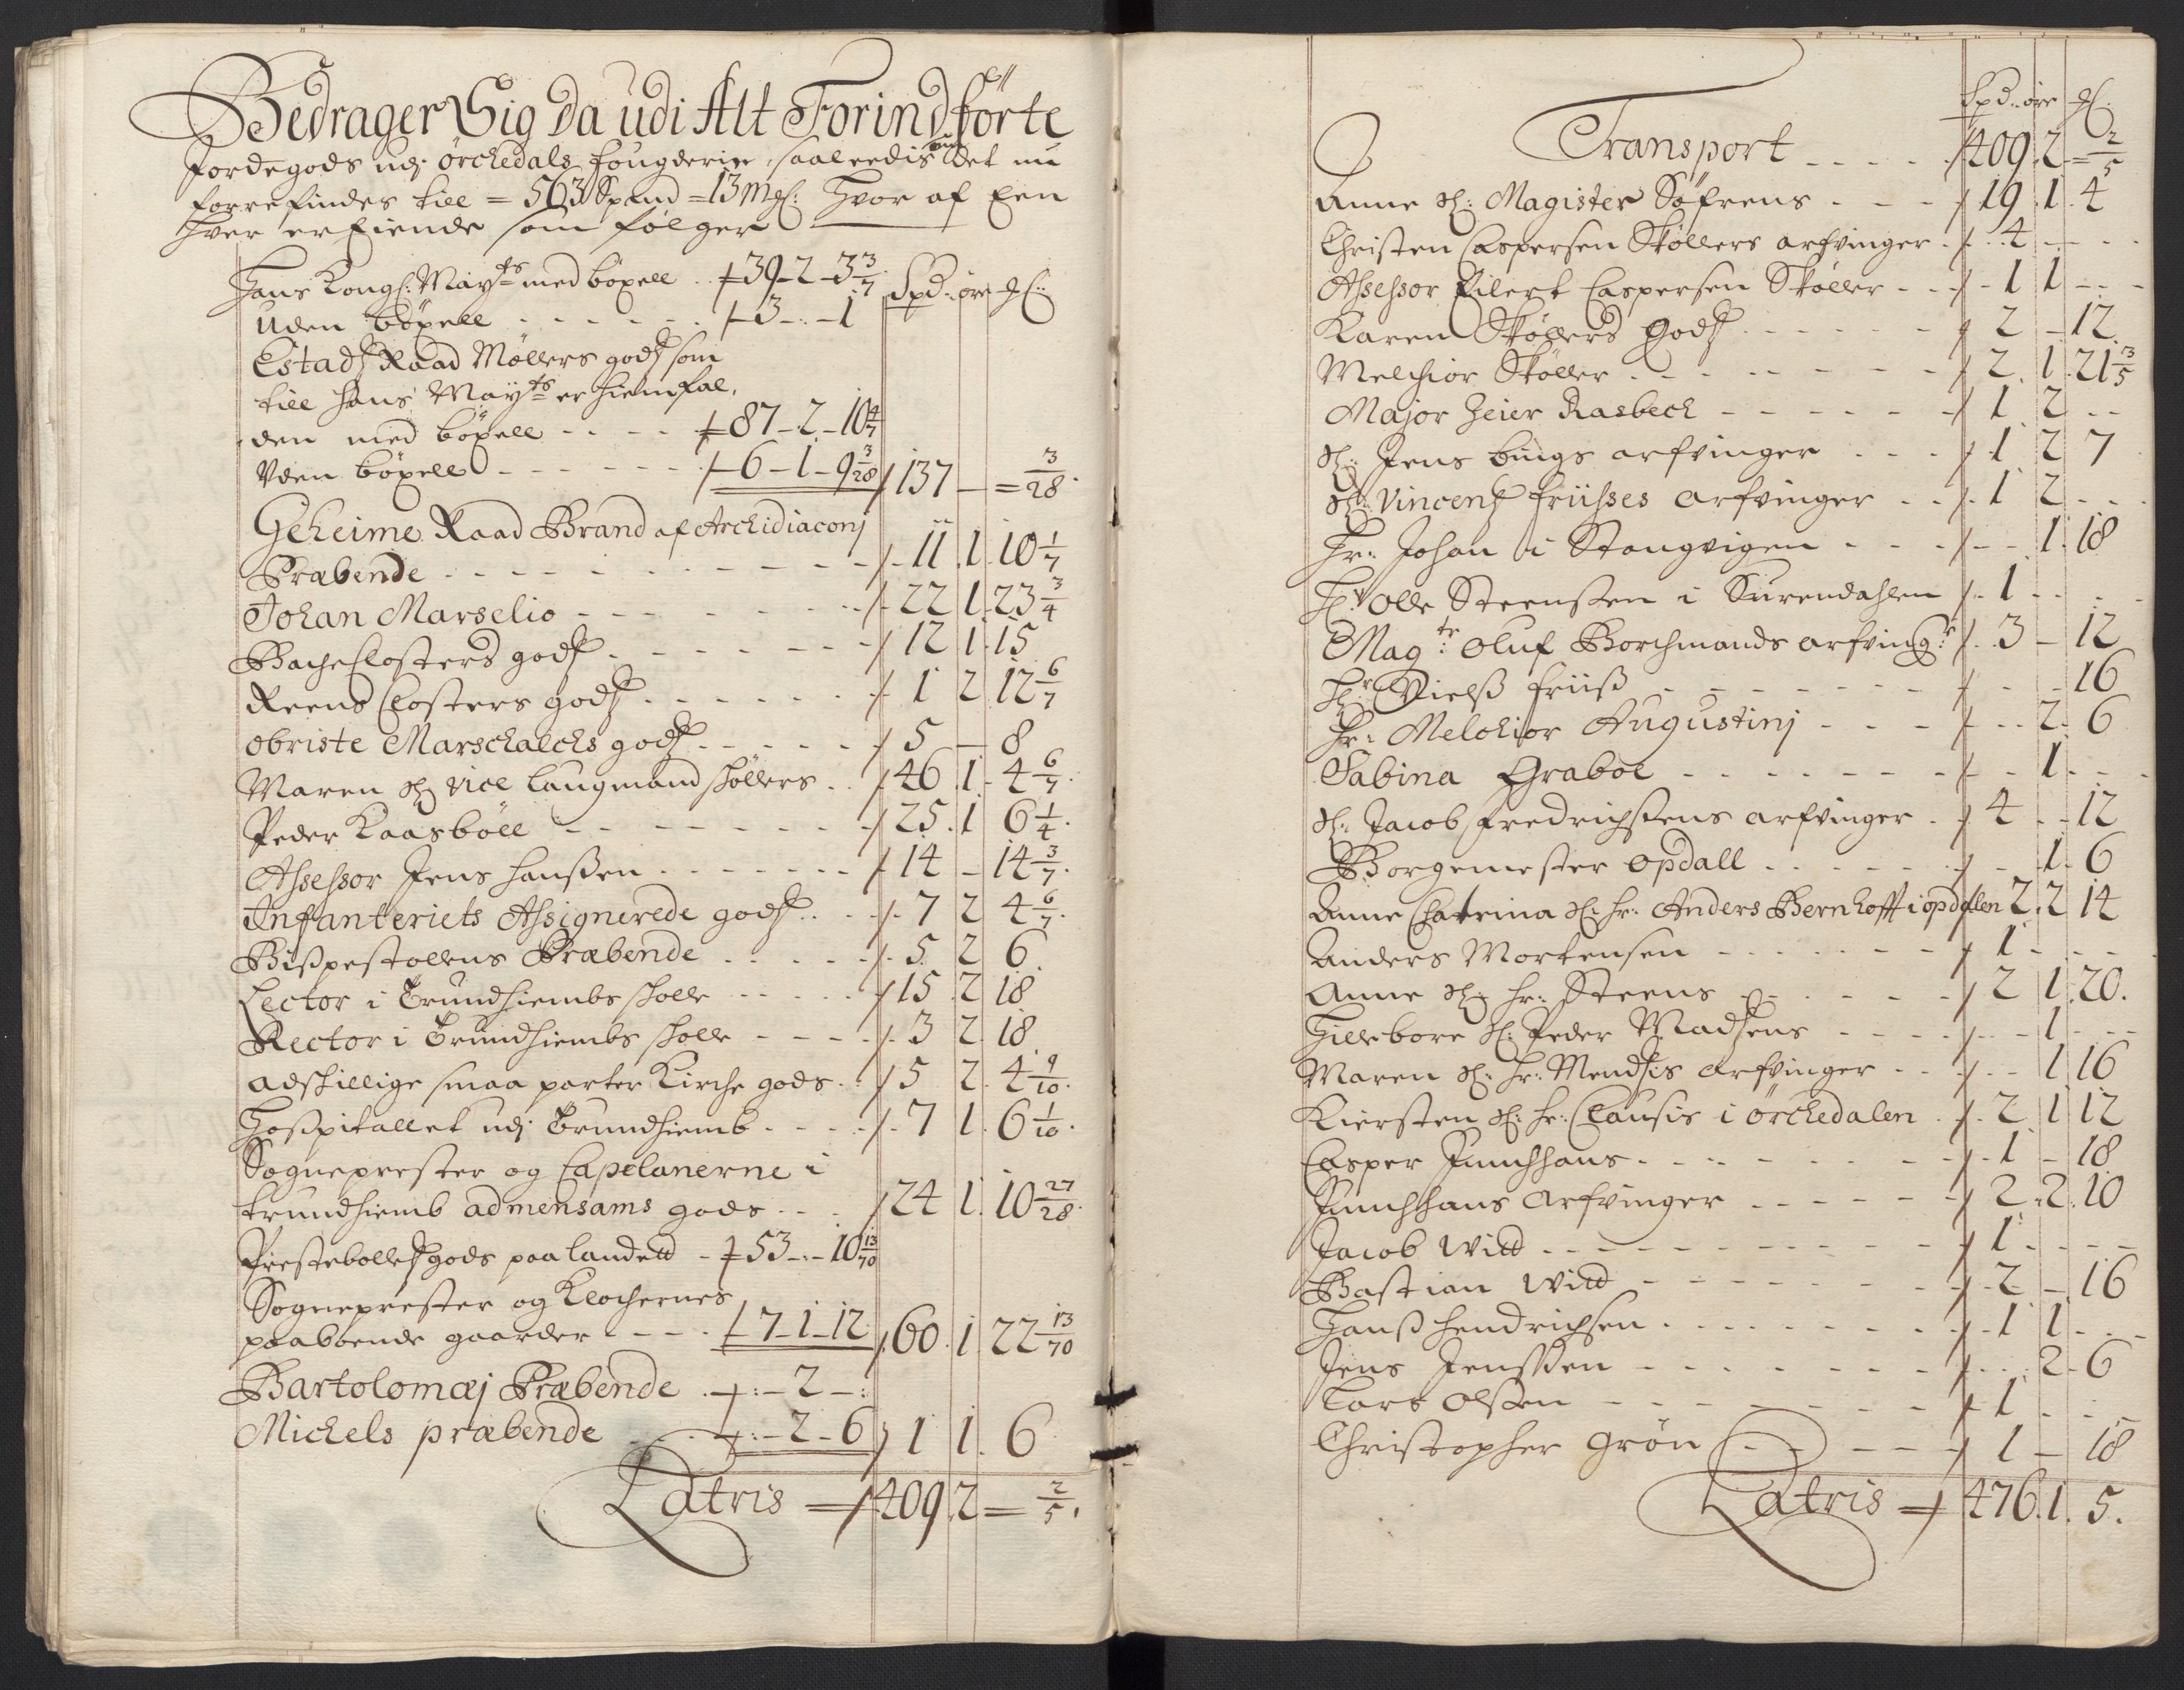 Bedrager Sig da udi Alt Forindförte
Jordegods udj örchedals fougderie, saaleedis som det nu
forrefindes till = 563 Spand = 13 mꝉ: Hvor af Een
hver er Eiende som følger
Spd: öre ꝉ:
Hans Kongl: Mayts med böxell . 39 - 2 - 3 3/7
Uden böxell - - - 3 - : - 1
Estads Raad Møllers gods som
till hans Mayts er hiemfal,
den med böxell - - - 87 - 2 - 10 4/7
Uden böxell - - - 6 - 1 - 9 3/28 137 - = 3/28
Geheime Raad Brand af Archidiaconj
Præbende - - - 11 1 10 1/7
Johan Marselio - - - 22 1 23 3/4
Bache Closters gods - - - 12 1 15
Reens Closters gods - - - 1 2 12 6/7
obriste Marschalchs gods - - - 5 - 8
Maren Sl: vice laugmand Skøllers . . 46 1 4 6/7
Peder Kaasböll - - - 25 1 6 1/4
Assessor Jens Hanssen - - - 14 - 14 3/7
Infanteriets Assignerede gods . . 7 2 4 6/7
Bispestollens Præbende - - - 5 2 6
Lector i Trundhiembs skolle - - - 15 2 18
Rector i Trundhiembs skolle - - - 3 2 18
adskillige smaa parter Kirche gods . . 5 2 4 9/10
Hospitallet udj Trundhiemb - - - 7 1 6 1/10
Sogneprester og Capelanerne i
trundhiemb admensams gods - - - 24 1 10 27/28
Prestebolles gods paa landett - 53 - : - 10 13/70
Sogneprester og Klochernes
paaboende gaarder - - - 7 - 1 - 12 60 1 22 13/70
Bartolomæj Præbende . : - 2 - :
Michels præbende - - : - 2 - 6 1 1 6
Latris = 409 2 = 2/5
Spd: öre ꝉ:
Transport - - - 409 2 = 2/5
Anne Sl: Magister Söfrens - - - 19 1 4
Christen Caspersen Skøllers arfvinger . 4 - -
Assessor Eilert Caspersen Skøller - - 1 1 - -
Karen Skøllers Gods - - - 2 - 12
Melchior Skøller - - - 2 1 21 3/5
Major Heier Rasbech - - - 1 2 - -
Sl: Jens bings arfvinger - - - 1 2 7
Sl: Vincens friisses arfvinger - - 1 2 - -
Hr: Johan i Stangvigen - - - - 1 18
Hr: Olle Steensen i Surendahlen 1 - -
Magtr: Oluf Borchmands arfving:r 3 - 12
Hr: Nielss friiss - - - - - 16
Hr: Melchior Augustinj - - - - 2 6
Sabina Graboe - - - - 1 - -
Sl: Jacob fredrichsens arfvinger - 4 - 12
Borgemester opdall - - - - 1 6
Anne Chatrina Sl: hr: Anders Bernhofft i opdalen 2 2 14
Anders Mortensen - - - 1 - -
Anne Sl: hr: Steens - - - 2 1 20
Hillebore Sl: Peder Madsens - - - - 1 - -
Maren Sl: hr: Mendsis arfvinger - - - 1 16
Kiersten Sl: hr: Clausis i örchedalen . 2 1 12
Casper Junchhans - - - 1 - 18
Junchhans arfvinger - - - 2 2 10
Jacob Witt - - - 1 - -
Bastian Witt - - - 2 - 16
Hanss Hendrichsen - - - 1 1 - -
Jens Jenssen - - - - 2 6
Lars Olsen - - - 1 - -
Christopher Grön - - - 1 - 18
Latris = 476 1 5